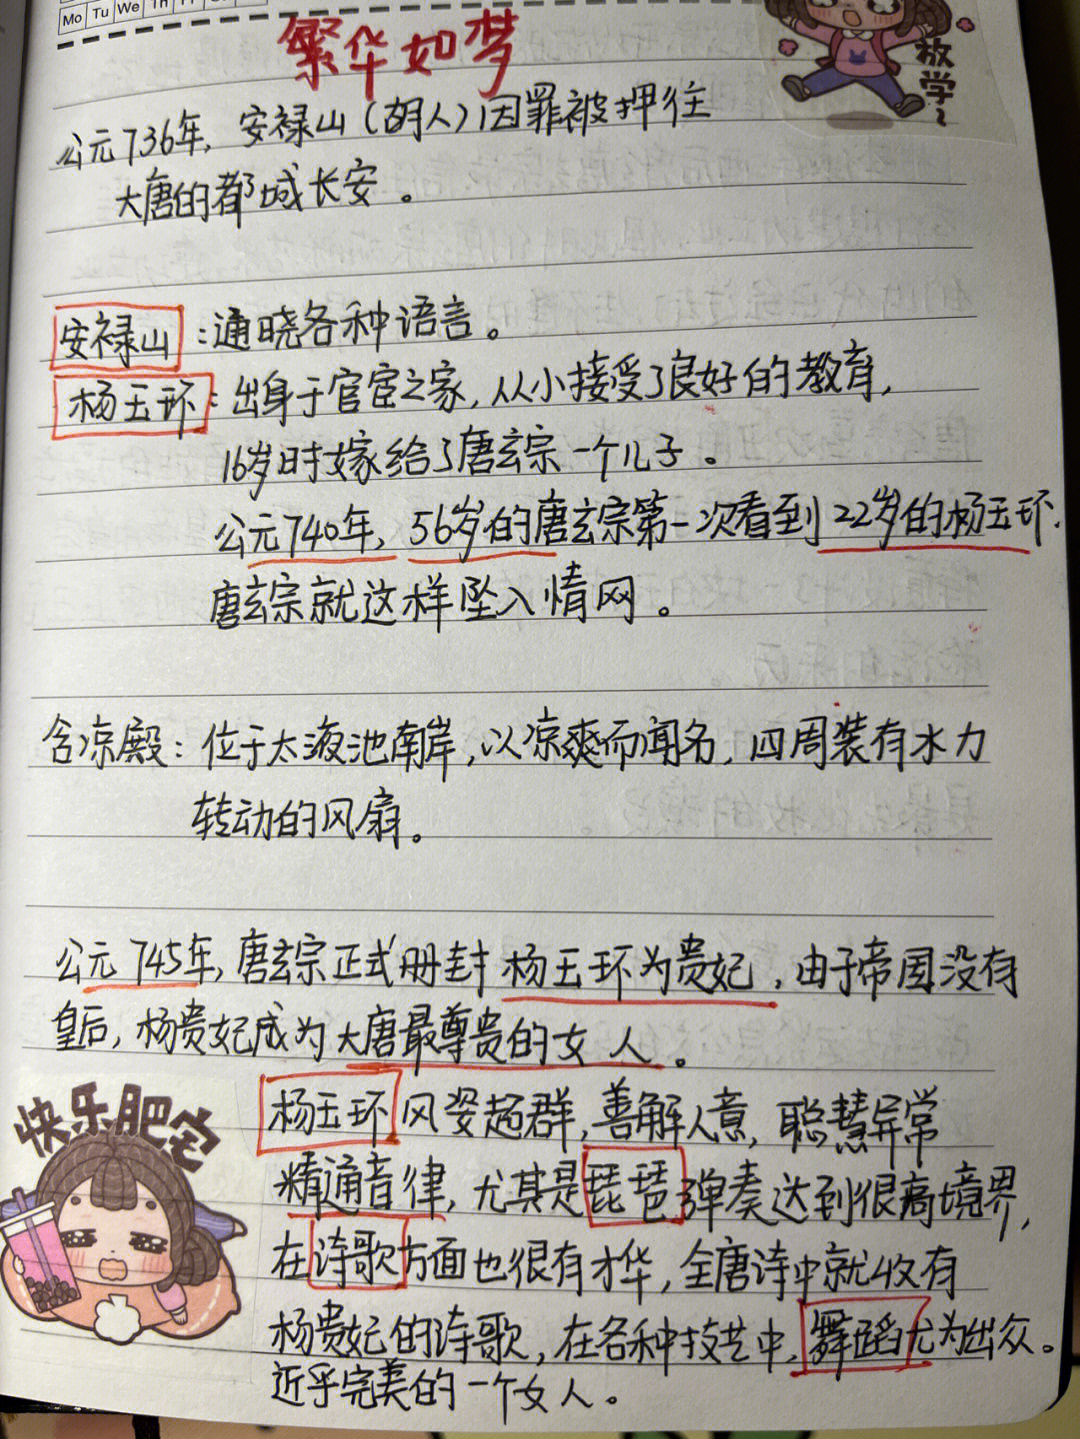 Mo Tu We Th
繁华如梦
放学~
公元736年, 安禄山(胡人)因罪被押往
大唐的都城长安。
安禄山:通晓各种语言。
杨玉环:出身于官宦之家,从小接受了良好的教育,
16岁时嫁给了唐玄宗一个儿子。
公元740年, 56岁的唐玄宗第一次看到22岁的杨玉环.
唐玄宗就这样坠入情网。
含凉殿:位于太液池南岸,以凉爽而闻名,四周装有水力
转动的风扇。
公元745年,唐玄宗正式册封杨玉环为贵妃,由于帝国没有
皇后,杨贵妃成为大唐最尊贵的女人。
快乐肥宅
杨玉环风姿超群,善解人意,聪慧异常
精通音律,尤其是琵琶弹奏达到很高境界,
在诗歌方面也很有才华,全唐诗中就收有
杨贵妃的诗歌,在各种技艺中,舞蹈尤为出众。
近乎完美的一个女人。